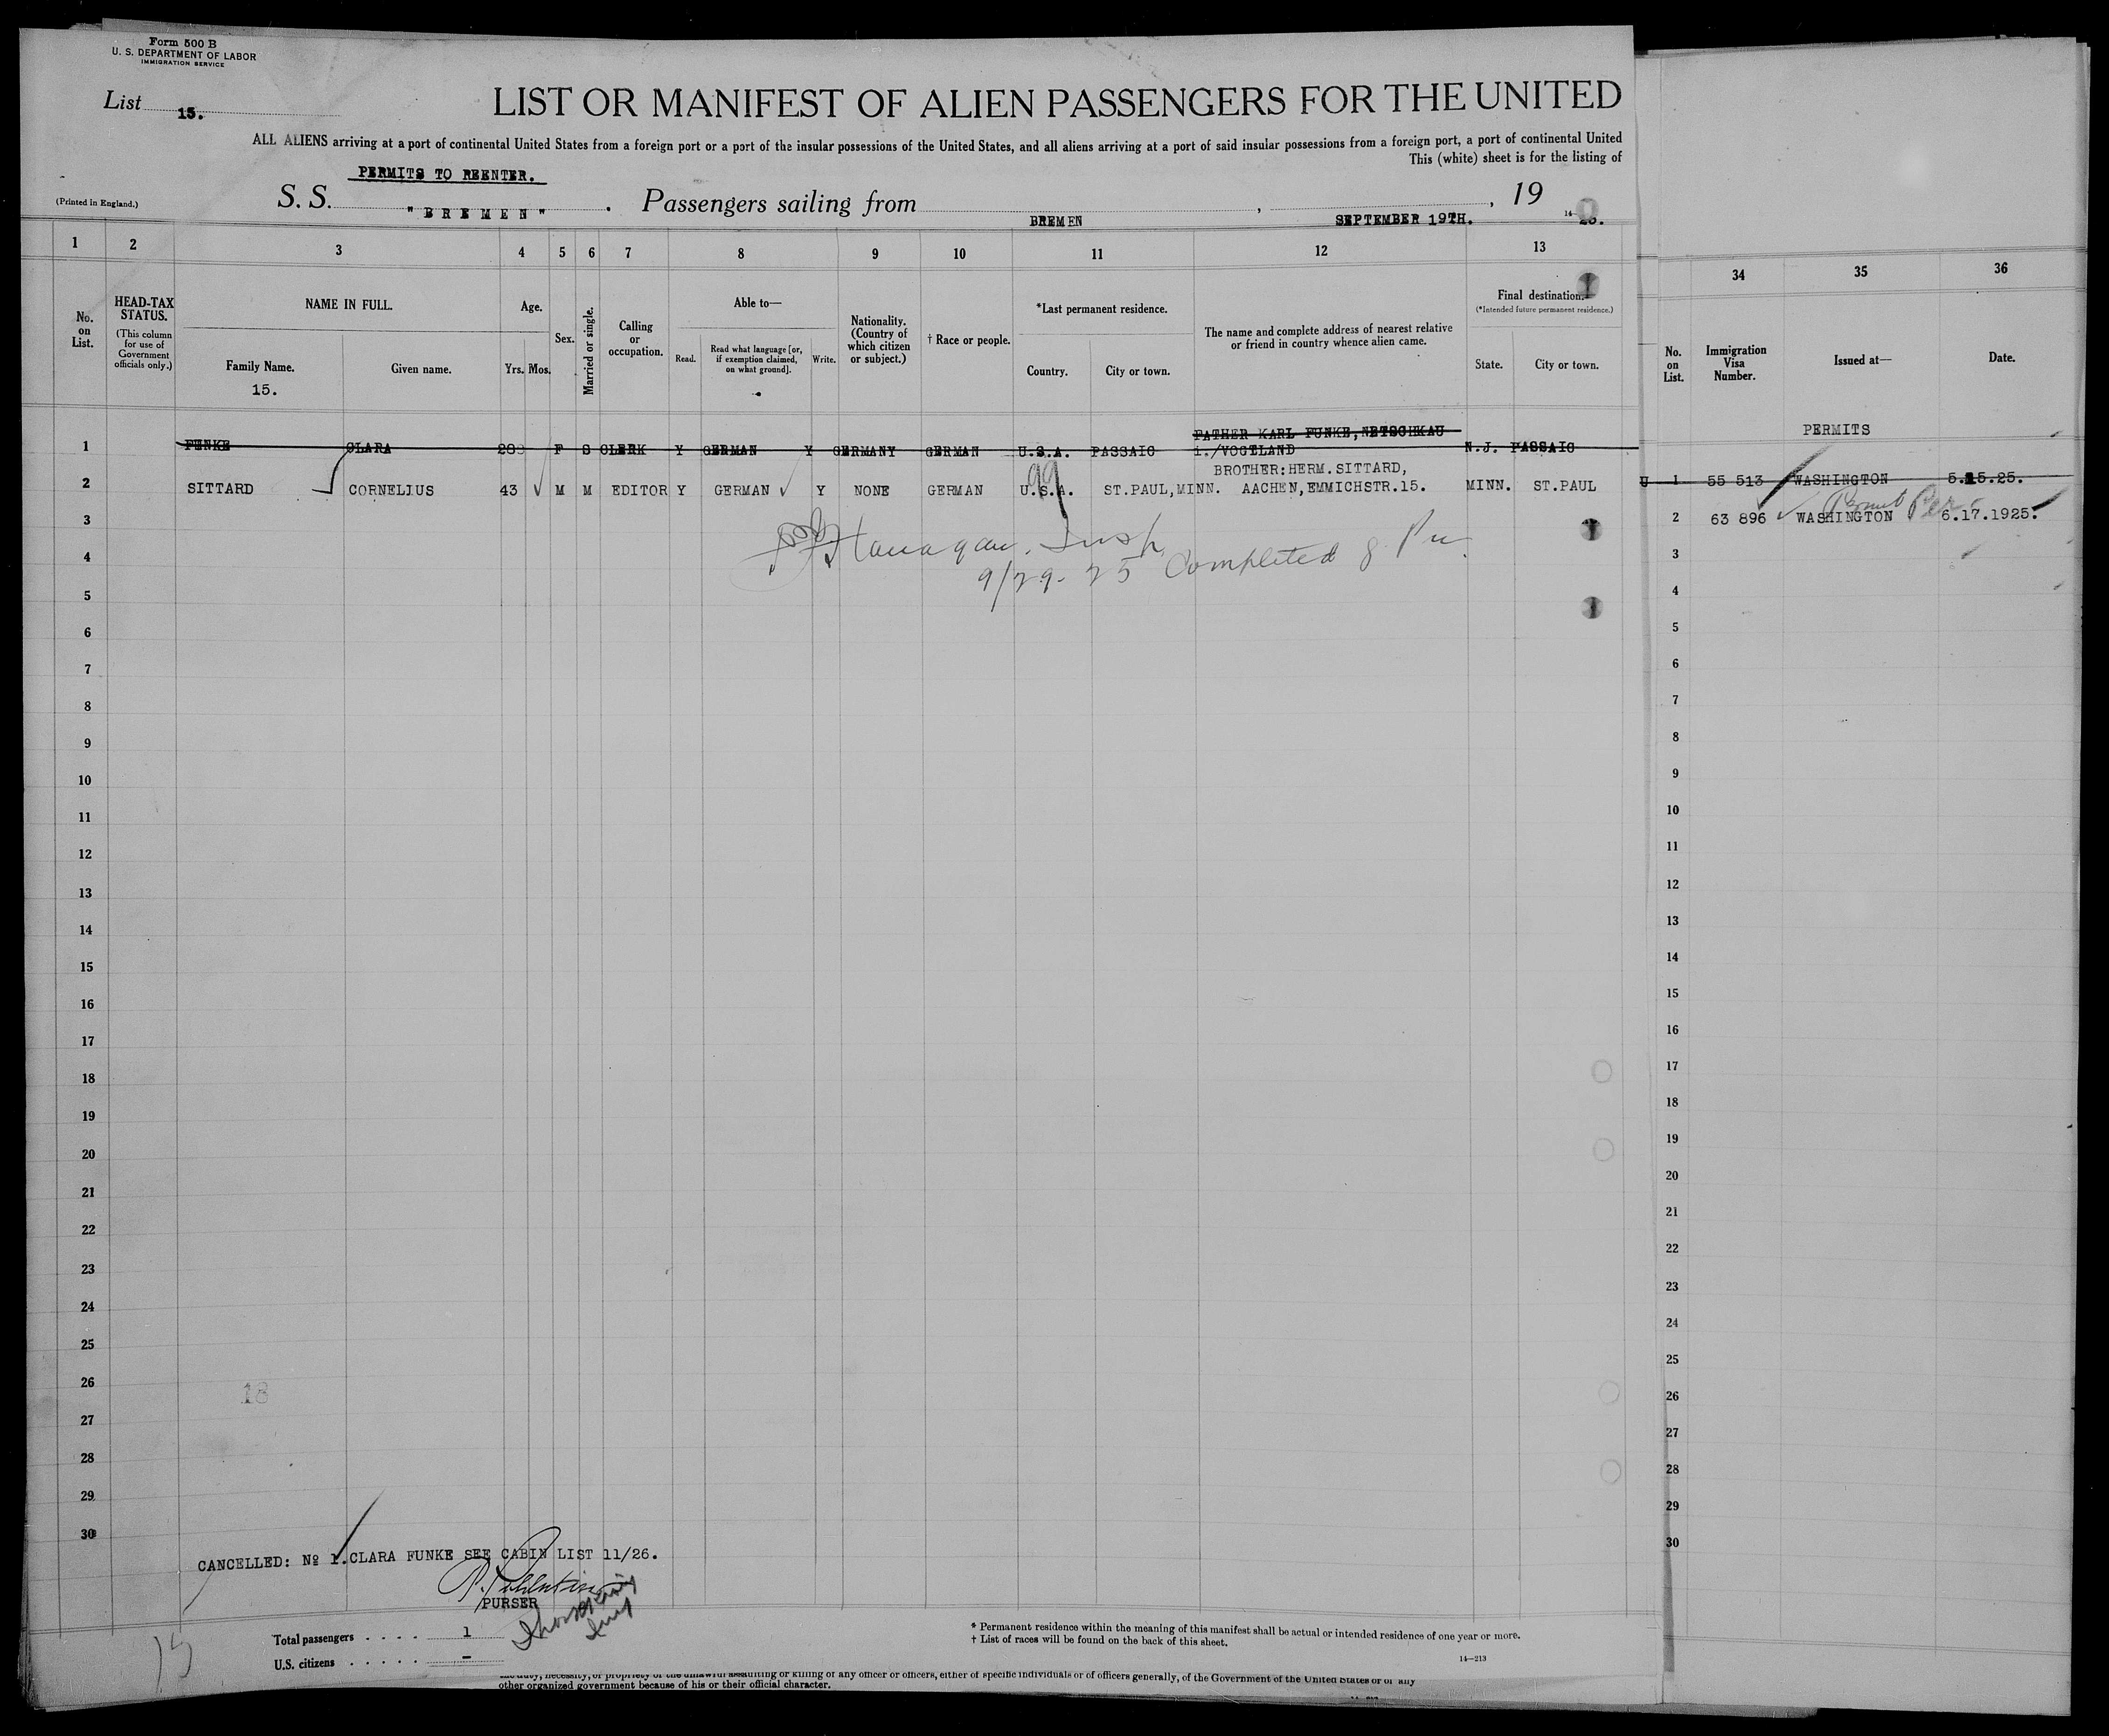 Form 500 B
U. S. DEPARTMENT OF LABOR
IMMIGRATION SERVICE
List 15.
LIST OR MANIFEST OF ALIEN PASSENGERS FOR THE UNITED
ALL ALIENS arriving at a port of continental United States from a foreign port or a port of the insular possessions of the United States, and all aliens arriving at a port of said insular possessions from a foreign port, a port of continental United
This (white) sheet is for the listing of
PERMITS TO REENTER.
(Printed in England.)
S. S. "BREMEN". Passengers sailing from BREMEN, SEPTEMBER 19TH., 19
1 2 3 4 5 6 7 8 9 10 11 12 13
No. on List.
HEAD-TAX STATUS.
(This column for use of Government officials only.)
NAME IN FULL.
Family Name.
15.
Given name.
Age.
Yrs. Mos.
Sex.
Married or single.
Calling or occupation.
Able to—
Read.
Read what language [or, if exemption claimed, on what ground].
Write.
Nationality. (Country of which citizen or subject.)
† Race or people.
*Last permanent residence.
Country.
City or town.
The name and complete address of nearest relative or friend in country whence alien came.
Final destination.
(*Intended future permanent residence.)
State.
City or town.
34 35 36
No. on List.
Immigration Visa Number.
Issued at—
Date.
PERMITS
FATHER KARL FUNKE, NETSCHKAU
1 FUNKE CLARA 28 F S CLERK Y GERMAN Y GERMANY GERMAN U.S.A. PASSAIC i./VOGTLAND N.J. PASSAIC
BROTHER: HERM. SITTARD,
2 SITTARD CORNELIUS 43 M M EDITOR Y GERMAN Y NONE GERMAN U.S.A. ST.PAUL,MINN. AACHEN,EMMICHSTR.15. MINN. ST.PAUL
99
U 1 55 513 WASHINGTON 5.15.25.
Permit Per
2 63 896 WASHINGTON 6.17.1925.
Flanagan. Insp
9/29-25 Completed
3
4
5
6
7
8
9
10
11
12
13
14
15
16
17
18
19
20
21
22
23
24
25
26
27
28
29
30
3
4
5
6
7
8
9
10
11
12
13
14
15
16
17
18
19
20
21
22
23
24
25
26
27
28
29
30
18
CANCELLED: No 1. CLARA FUNKE SEE CABIN LIST 11/26.
PURSER
15
Total passengers . . . . 1
U.S. citizens . . . . . –
* Permanent residence within the meaning of this manifest shall be actual or intended residence of one year or more.
† List of races will be found on the back of this sheet.
14—213
the duty, necessity, or propriety of the unlawful assaulting or killing of any officer or officers, either of specific individuals or of officers generally, of the Government of the United States or of any
other organized government because of his or their official character.